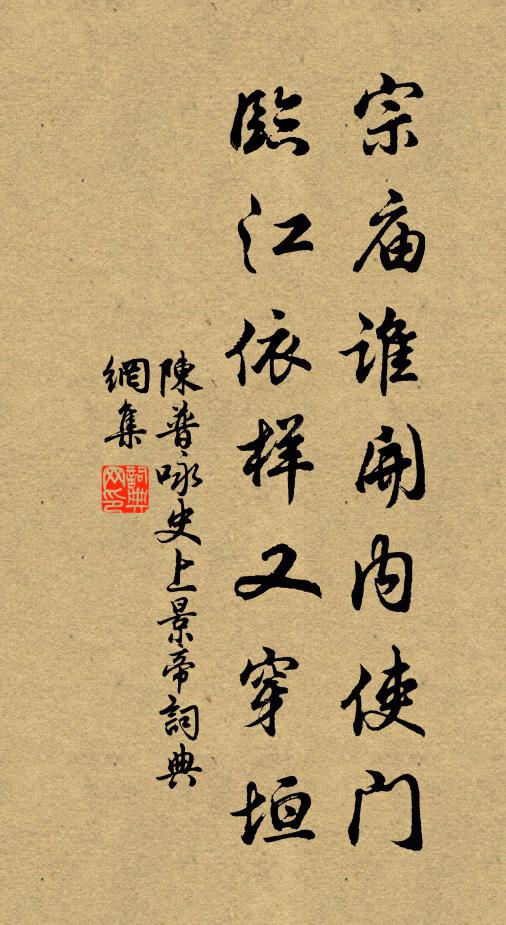 宗庙谁開内使门
臨江依样又穿垣
陳普咏史上景帝詞典
網集
詞典
网印